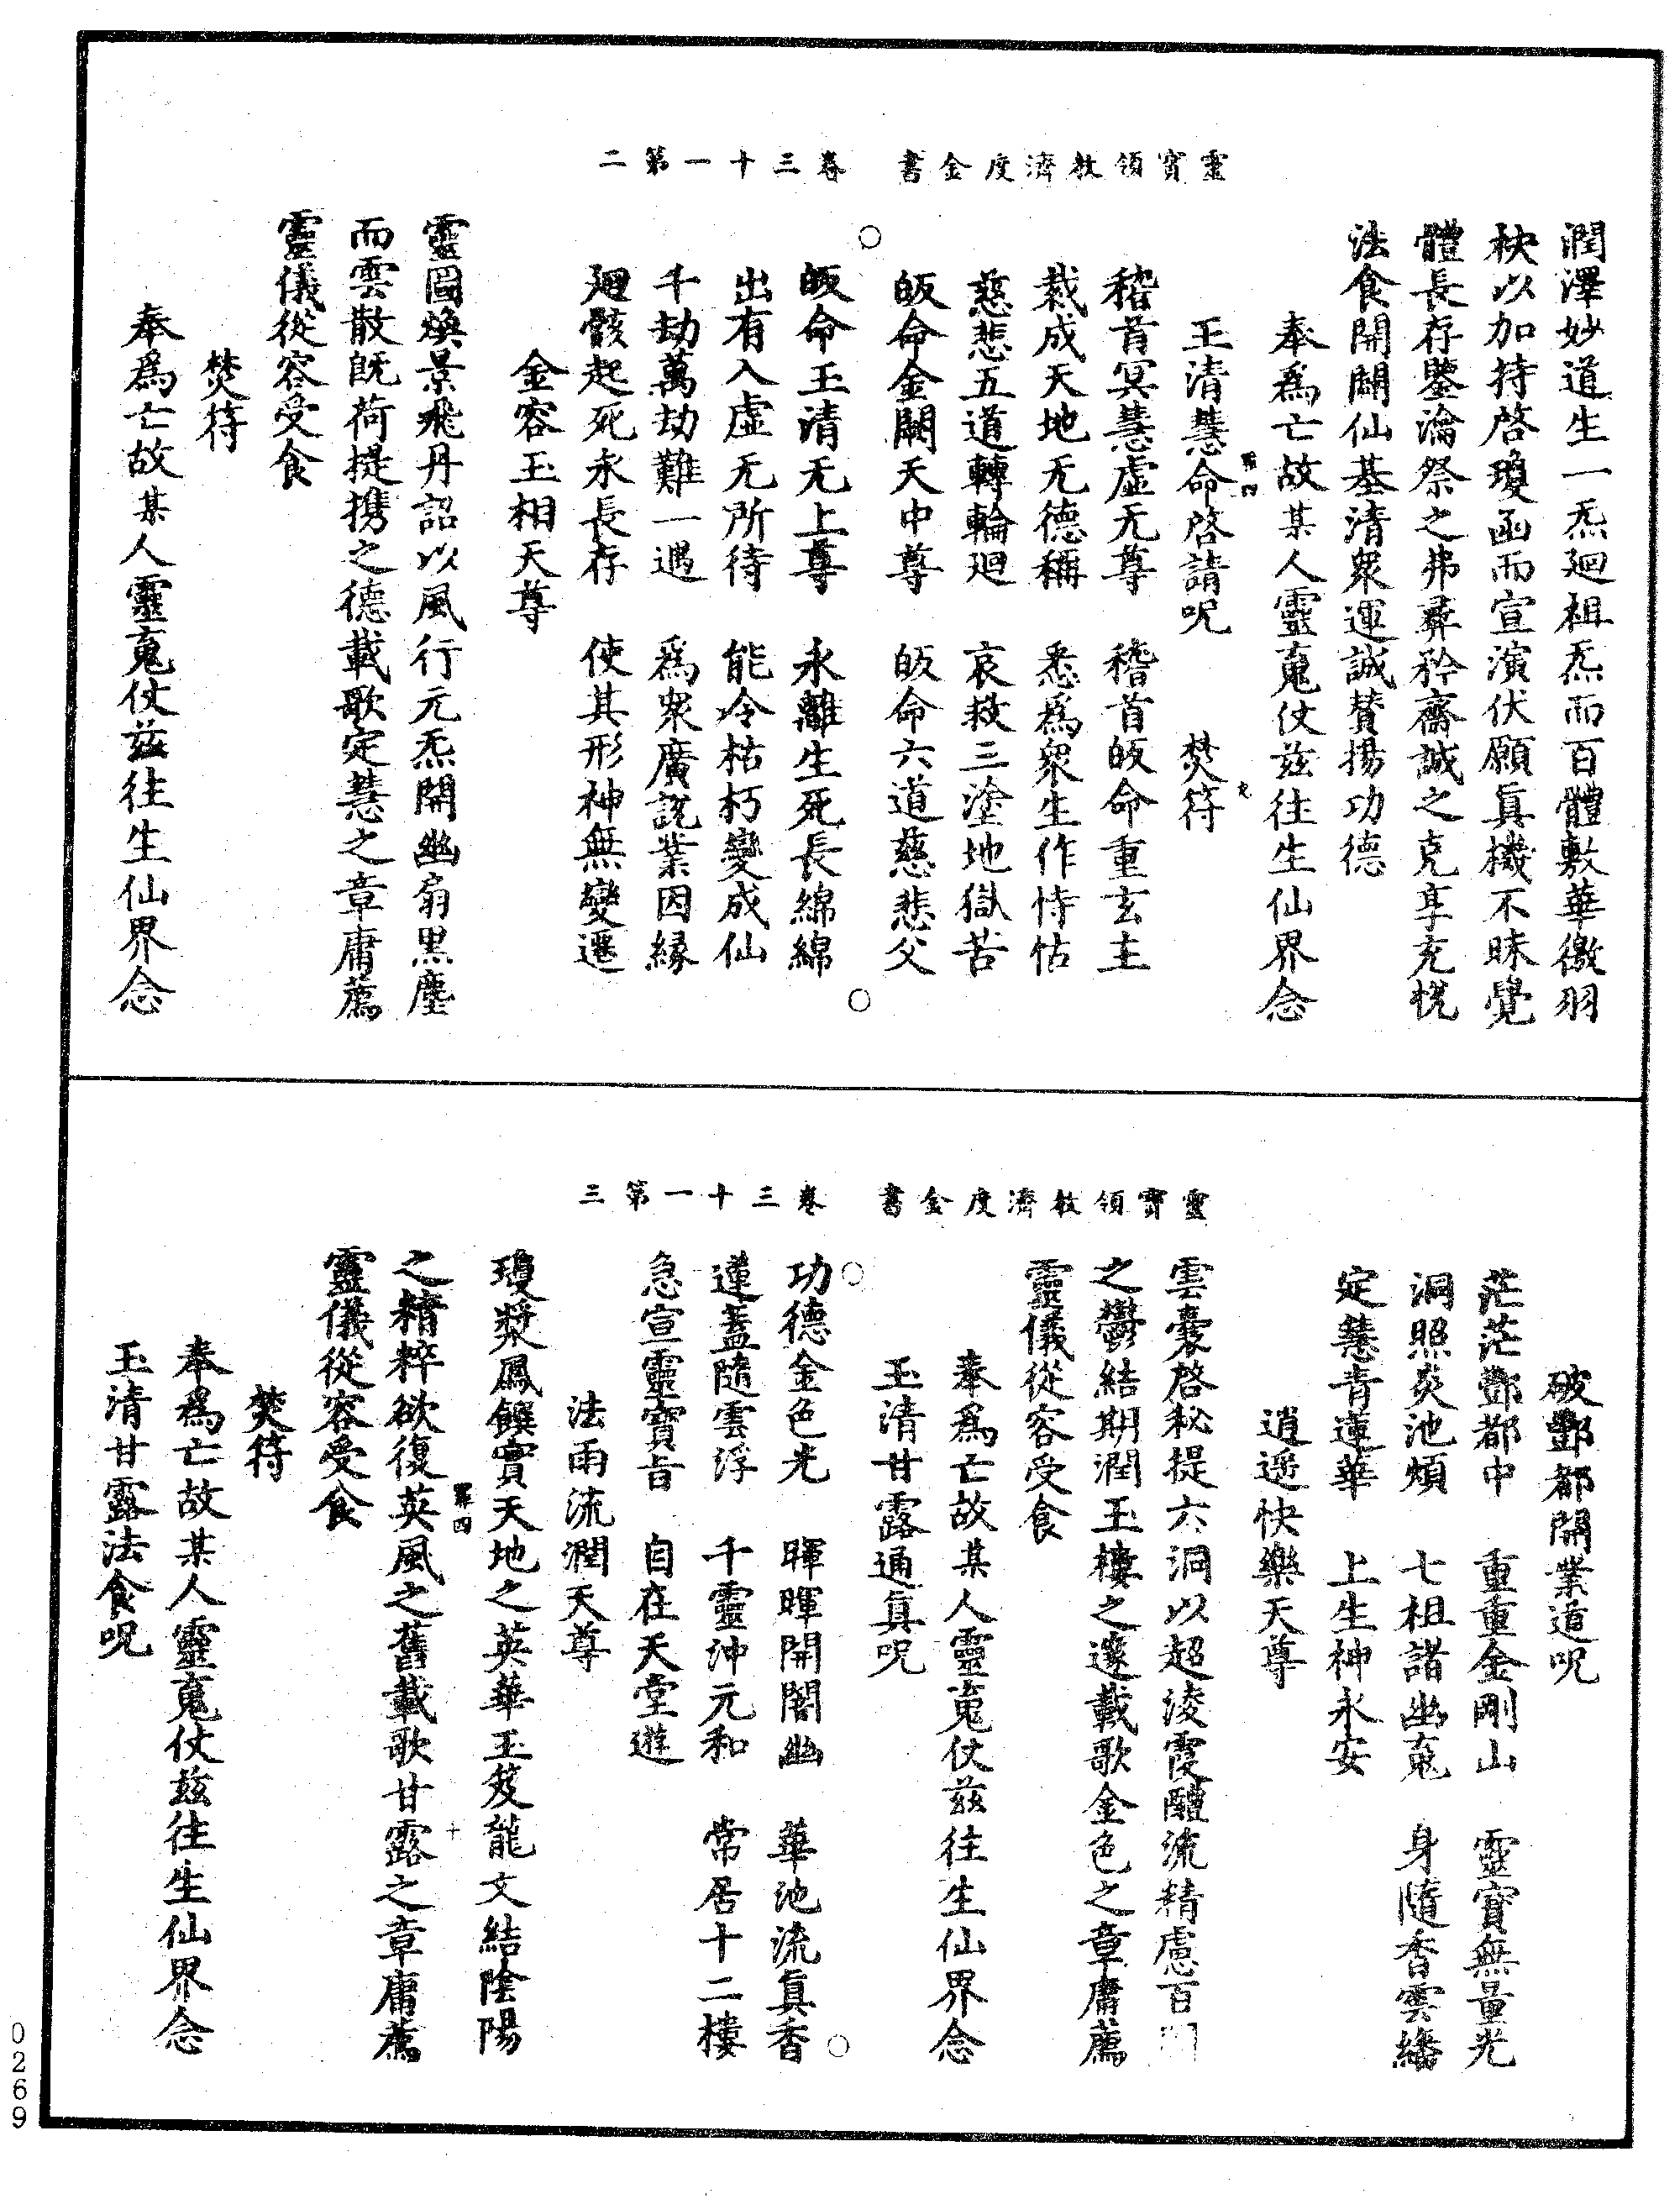 靈寶領教濟度金書　卷三十一第二
潤澤妙道生一炁廻祖炁而百體敷華徼羽
袂以加持啓瓊函而宣演伏願眞機不昧覺
體長存鑒瀹祭之弗彛矜齋誠之克享充恱
法食開闢仙基清衆運誠賛揚功德
奉爲亡故某人靈䰟仗玆往生仙界念
玉清慧命啓請呪　焚符
稽首冥慧虛无尊　稽首皈命重玄主
裁成天地无德稱　悉爲衆生作恃怙
慈悲五道轉輪廻　哀救三塗地獄苦
皈命金闕天中尊　皈命六道慈悲父
皈命玉清无上尊　永離生死長綿綿
出有入虛无所待　能令枯朽變成仙
千劫萬劫難一遇　爲衆廣說業因緣
廻骸起死永長存　使其形神無變遷
金容玉相天尊
靈圖煥景飛丹詔以風行元炁開幽扃黑塵
而雲散旣荷提携之德載歌定慧之章庸薦
靈儀從容受食
焚符
奉爲亡故某人靈䰟仗玆往生仙界念
靈寶領教濟度金書　卷三十一第三
破酆都開業道呪
茫茫酆都中　重重金剛山　靈寶無量光
洞照炎池煩　七祖諸幽䰟　身隨香雲繙
定慧青蓮華　上生神永安
逍遙快樂天尊
雲裛啓秘提六洞以超淩霞醴流精慮百
之鬱結期潤玉樓之邃載歌金色之章庸薦
靈儀從容受食
奉爲亡故某人靈䰟仗玆往生仙界念
玉清甘露通眞呪
功德金色光　暉暉開闇幽　華池流眞香
蓮蓋隨雲浮　千靈沖元和　常居十二樓
急宣靈寶旨　自在天堂遊
法雨流潤天尊
瓊漿鳳饌實天地之英華玉笈龍文結陰陽
之精粹欲復英風之舊載歌甘露之章庸薦
靈儀從容受食
焚符
奉爲亡故某人靈䰟仗玆往生仙界念
玉清甘露法食呪
0269